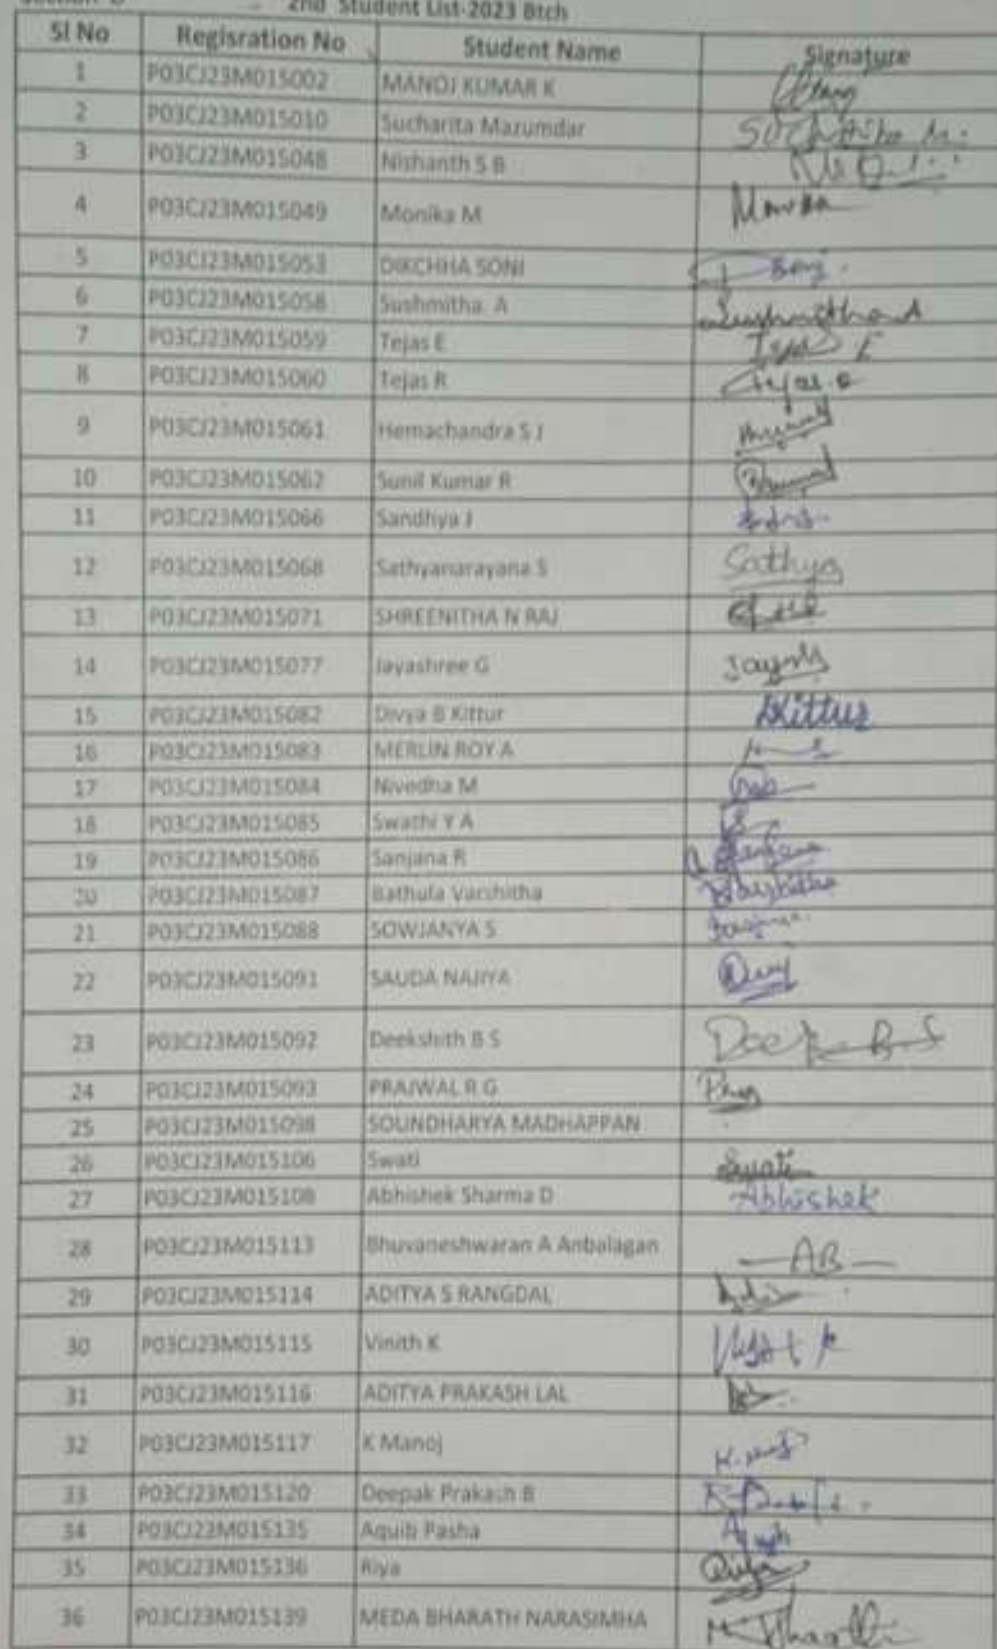 2nd Student List-2023 Btch
Sl No Regisration No Student Name Signature
1 P03CJ23M015002 MANOJ KUMAR K
2 P03CJ23M015010 Sucharita Mazumdar
3 P03CJ23M015048 Nishanth S B
4 P03CJ23M015049 Monika M
5 P03CJ23M015053 DIKCHHA SONI
6 P03CJ23M015058 Sushmitha. A
7 P03CJ23M015059 Tejas E Tejas E
8 P03CJ23M015060 Tejas R
9 P03CJ23M015061 Hemachandra S J
10 P03CJ23M015062 Sunil Kumar R
11 P03CJ23M015066 Sandhya J
12 P03CJ23M015068 Sathyanarayana S Sathya
13 P03CJ23M015071 SHREENITHA N RAJ
14 P03CJ23M015077 Jayashree G
15 P03CJ23M015082 Divya B Kittur DKittur
16 P03CJ23M015083 MERLIN ROY A
17 P03CJ23M015084 Nivedha M
18 P03CJ23M015085 Swathi Y A
19 P03CJ23M015086 Sanjana R Sanjana
20 P03CJ23M015087 Bathula Varshitha
21 P03CJ23M015088 SOWJANYA S
22 P03CJ23M015091 SAUDA NAJIYA
23 P03CJ23M015092 Deekshith B S
24 P03CJ23M015093 PRAJWAL R G
25 P03CJ23M015098 SOUNDHARYA MADHAPPAN
26 P03CJ23M015106 Swati Swati
27 P03CJ23M015108 Abhishek Sharma D Abhishek
28 P03CJ23M015113 Bhuvaneshwaran A Anbalagan AB
29 P03CJ23M015114 ADITYA S RANGDAL
30 P03CJ23M015115 Vinith K
31 P03CJ23M015116 ADITYA PRAKASH LAL
32 P03CJ23M015117 K Manoj
33 P03CJ23M015120 Deepak Prakash B
34 P03CJ23M015135 Aquib Pasha
35 P03CJ23M015136 Riya
36 P03CJ23M015139 MEDA BHARATH NARASIMHA